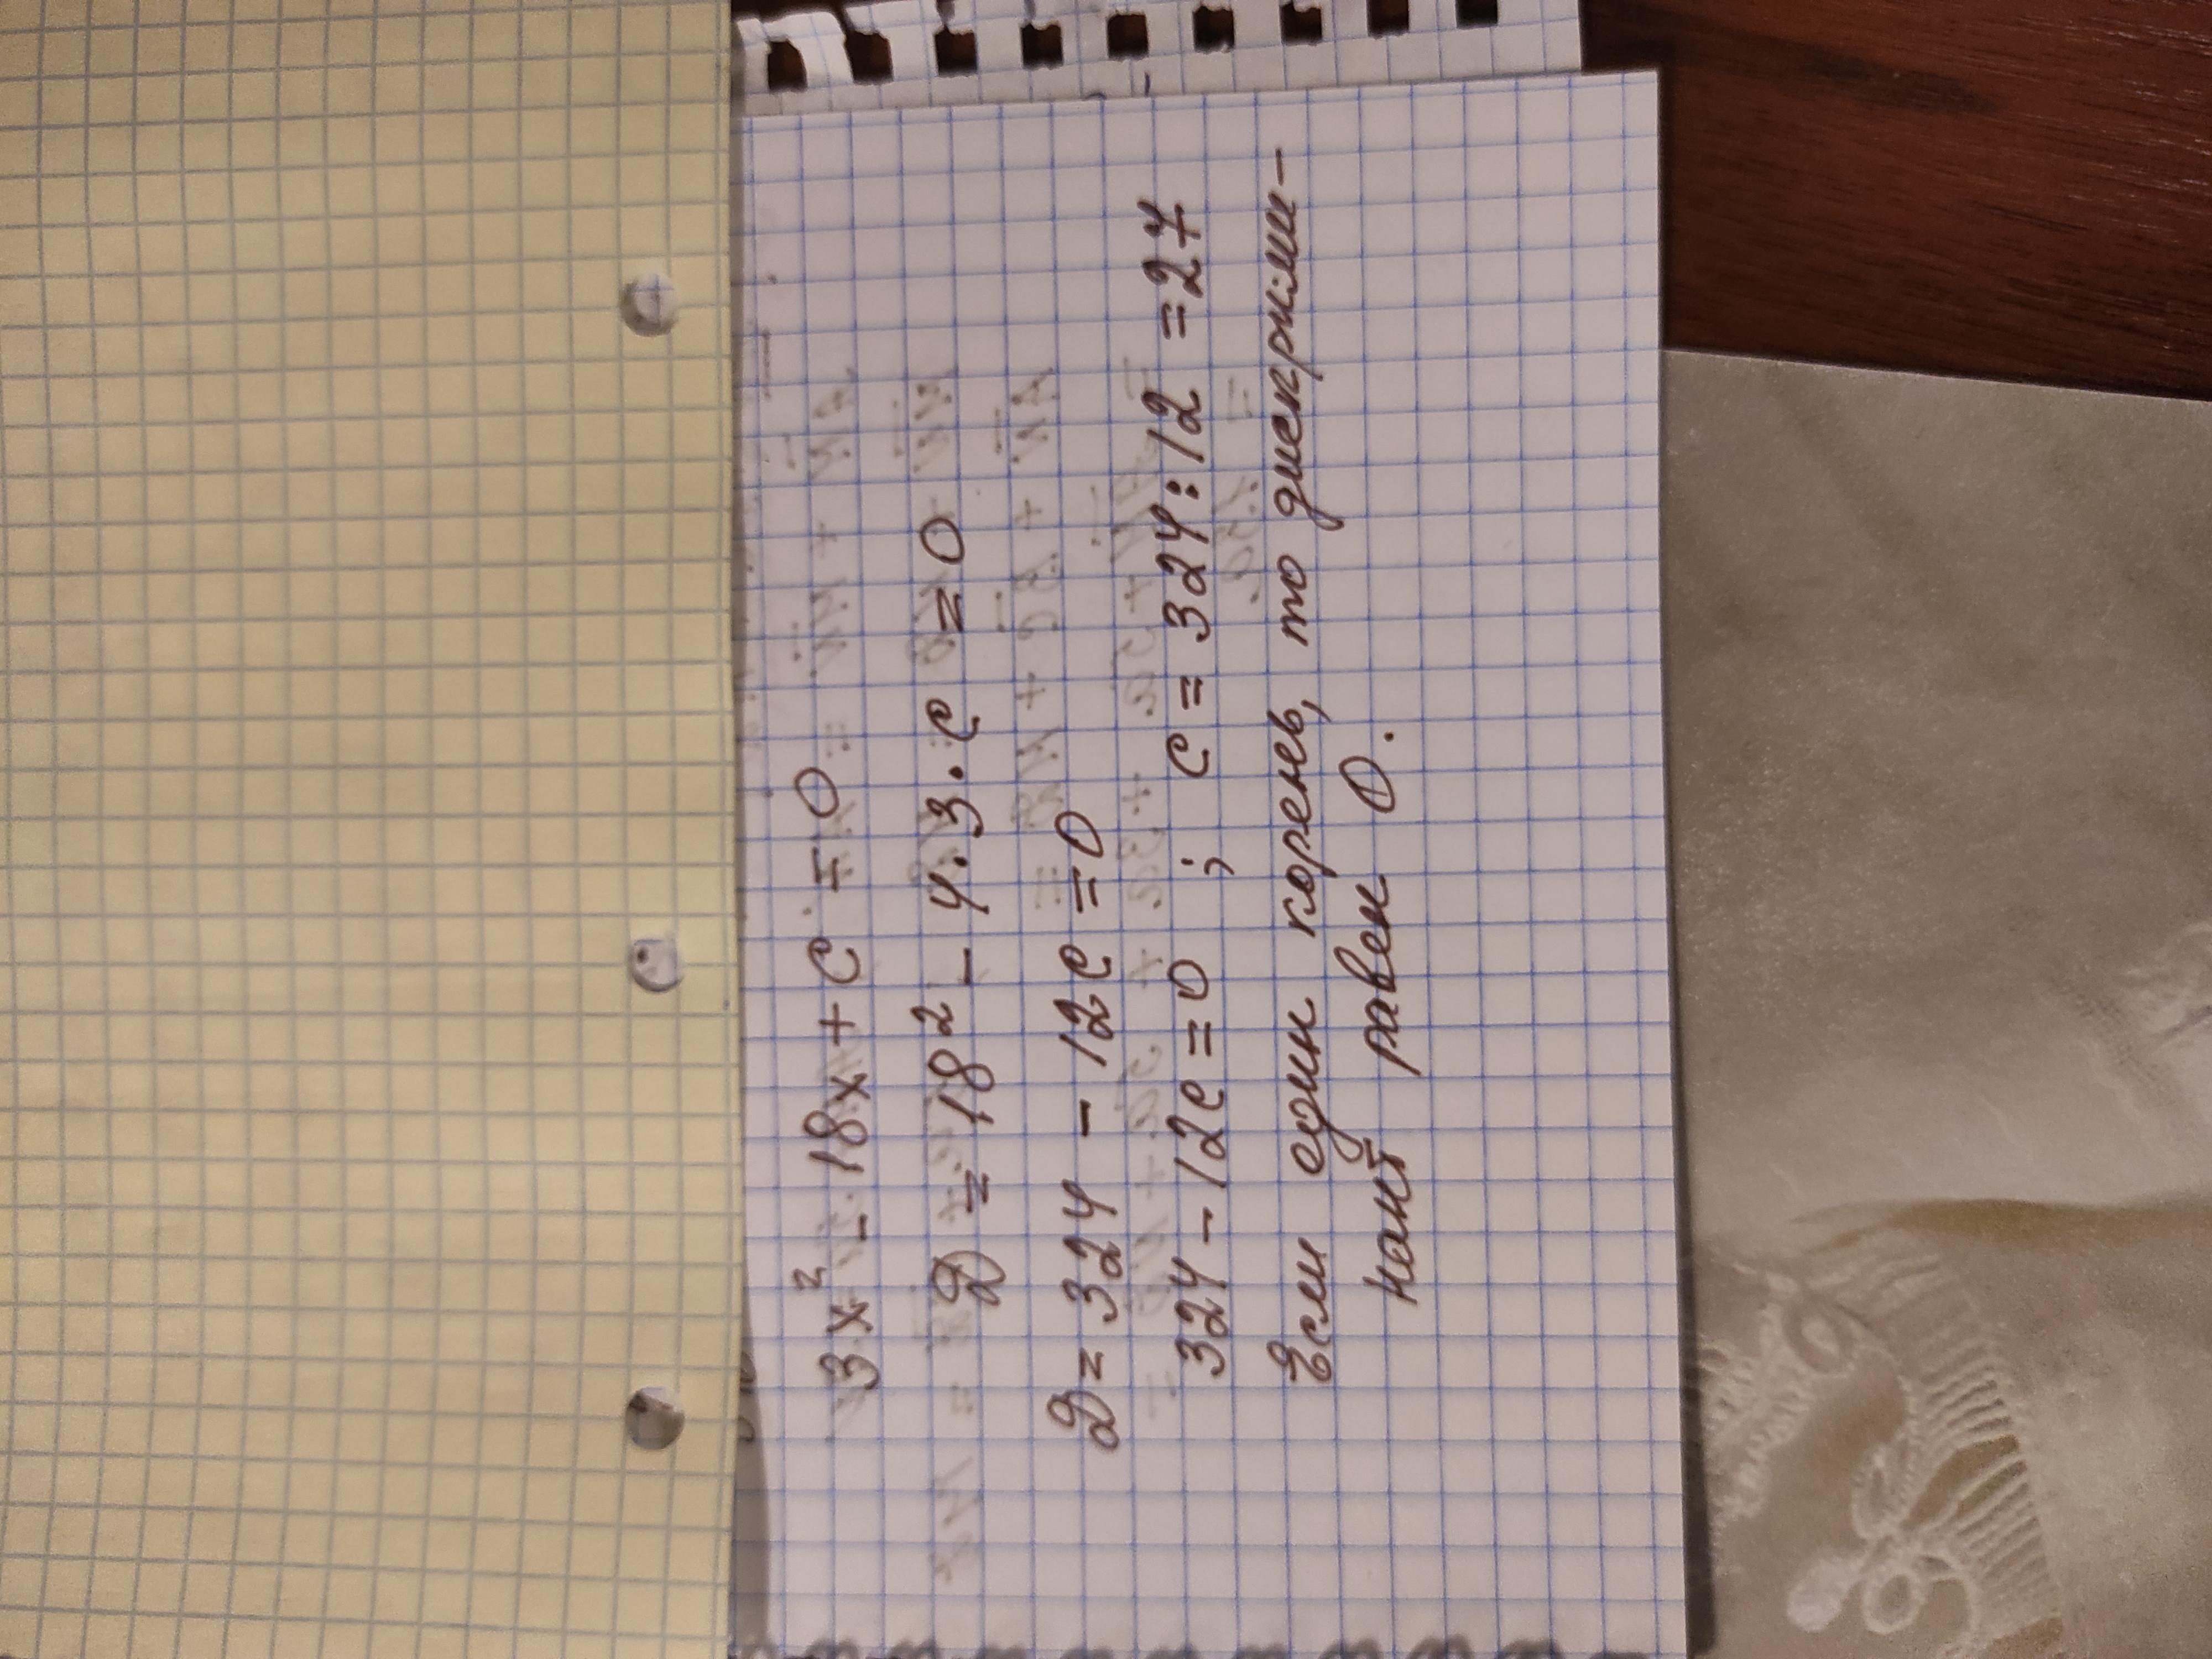 3x² - 18x + c = 0
D = 18² - 4·3·c = 0
D = 324 - 12c = 0
324 - 12c = 0 ; c = 324:12 = 27
Если один корень, то дискрими-
нант равен 0.